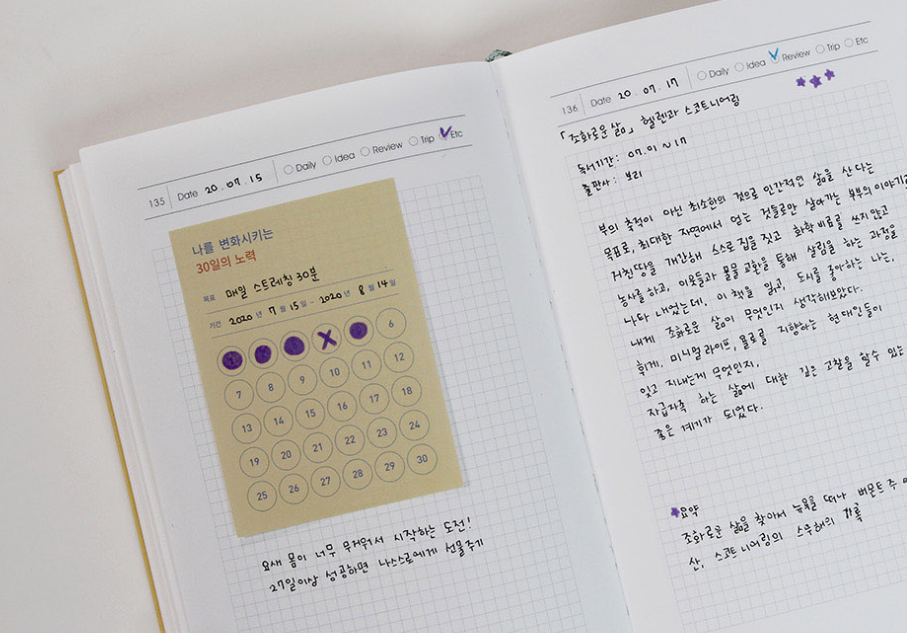 135 Date 20.07.15 Daily Idea Review Trip Etc
나를 변화시키는
30일의 노력
목표 매일 스트레칭 30분
기간 2020 년 7 월 15 일 - 2020 년 8 월 14 일
1 X 6
7 8 9 10 11 12
13 14 15 16 17 18
19 20 21 22 23 24
25 26 27 28 29 30
요새 몸이 너무 무거워서 시작하는 도전!
27일이상 성공하면 나스스로에게 선물주기
136 Date 20.07.17 Daily Idea Review Trip Etc
「조화로운 삶」 헬렌과 스코트니어링
독서기간: 07.01 ~ 17
출판사: 보리
부의 축적이 아닌 최소한의 것으로 인간적인 삶을 산다는
목표로, 최대한 자연에서 얻는 것들로만 살아가는 부부의 이야기로
거친땅을 개간해 스스로 집을 짓고 화학비료를 쓰지않고
농사를 하고, 이웃들과 물물교환을 통해 살림을 하는 과정을
나타내었는데, 이 책을 읽고, 도시를 좋아하는 나는,
내게 조화로운 삶이 무엇인지 생각해보았다.
휘게, 미니멀라이프, 욜로를 지향하는 현대인들이
잊고 지내는게 무엇인지,
자급자족 하는 삶에 대한 깊은 고찰을 할수 있는
좋은 계기가 되었다.
요약
조화로운 삶을 찾아서 뉴욕을 떠나 버몬트 주
산, 스코트니어링의 스무해의 기록